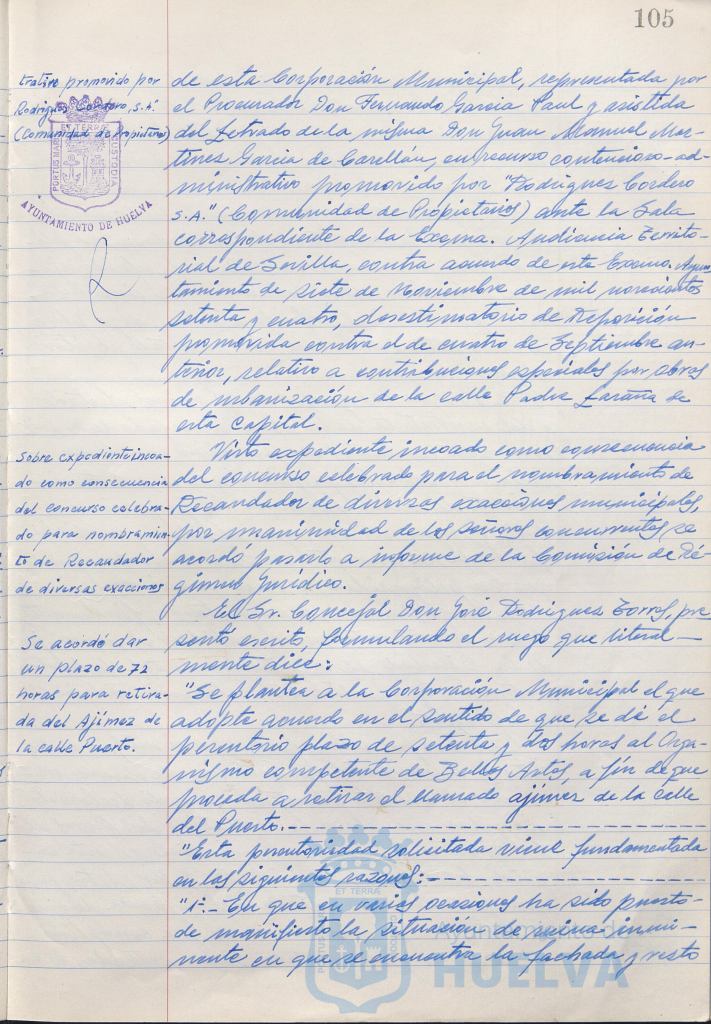 105
trativo promovido por
Rodríguez Cordero, S.A.
(Comunidad de Propietarios)
ET TERRAE
PORTUS MARIS
CUSTODIA
AYUNTAMIENTO DE HUELVA
de esta Corporación Municipal, representada por
el Procurador Don Fernando García Paul y asistida
del Letrado de la misma Don Juan Manuel Mar-
tinez Garcia de Carellán, en recurso contencioso-ad-
ministrativo promovido por "Rodriguez Cordero
S.A." (Comunidad de Propietarios) ante la Sala
correspondiente de la Excma. Audiencia Territo-
rial de Sevilla, contra acuerdo de este Excmo. Ayun-
tamiento de siete de Noviembre de mil novecientos
setenta y cuatro, desestimatorio de Reposición
promovida contra el de cuatro de Septiembre an-
terior, relativo a contribuciones especiales por obras
de urbanización de la calle Padre Laraña de
esta Capital.
Sobre expediente incoa-
do como consecuencia
del concurso celebra-
do para nombramien-
to de Recaudador
de diversas exacciones
Visto expediente incoado como consecuencia
del concurso celebrado para el nombramiento de
Recaudador de diversas exacciones municipales,
por unanimidad de los señores concurrentes se
acordó pasarlo a informe de la Comisión de Ré-
gimen Jurídico.
Se acordó dar
un plazo de 72
horas para retira-
da del Ajimez de
la calle Puerto.
El Sr. Concejal Don José Rodriguez Torres, pre
sentó escrito, formulando el ruego que literal-
mente dice:
"Se plantea a la Corporación Municipal el que
adopte acuerdo en el sentido de que se dé el
perentorio plazo de setenta y dos horas al Orga-
nismo competente de Bellas Artes, a fin de que
proceda a retirar el llamado ajimez de la calle
del Puerto.
"Esta perentoriedad solicitada viene fundamentada
en las siguientes razones:
"1º.- En que en varias ocasiones ha sido puesto
de manifiesto la situación de ruina inmi-
nente en que se encuentra la fachada y resto
ET TERRAE
Ayuntamiento de
HUELVA